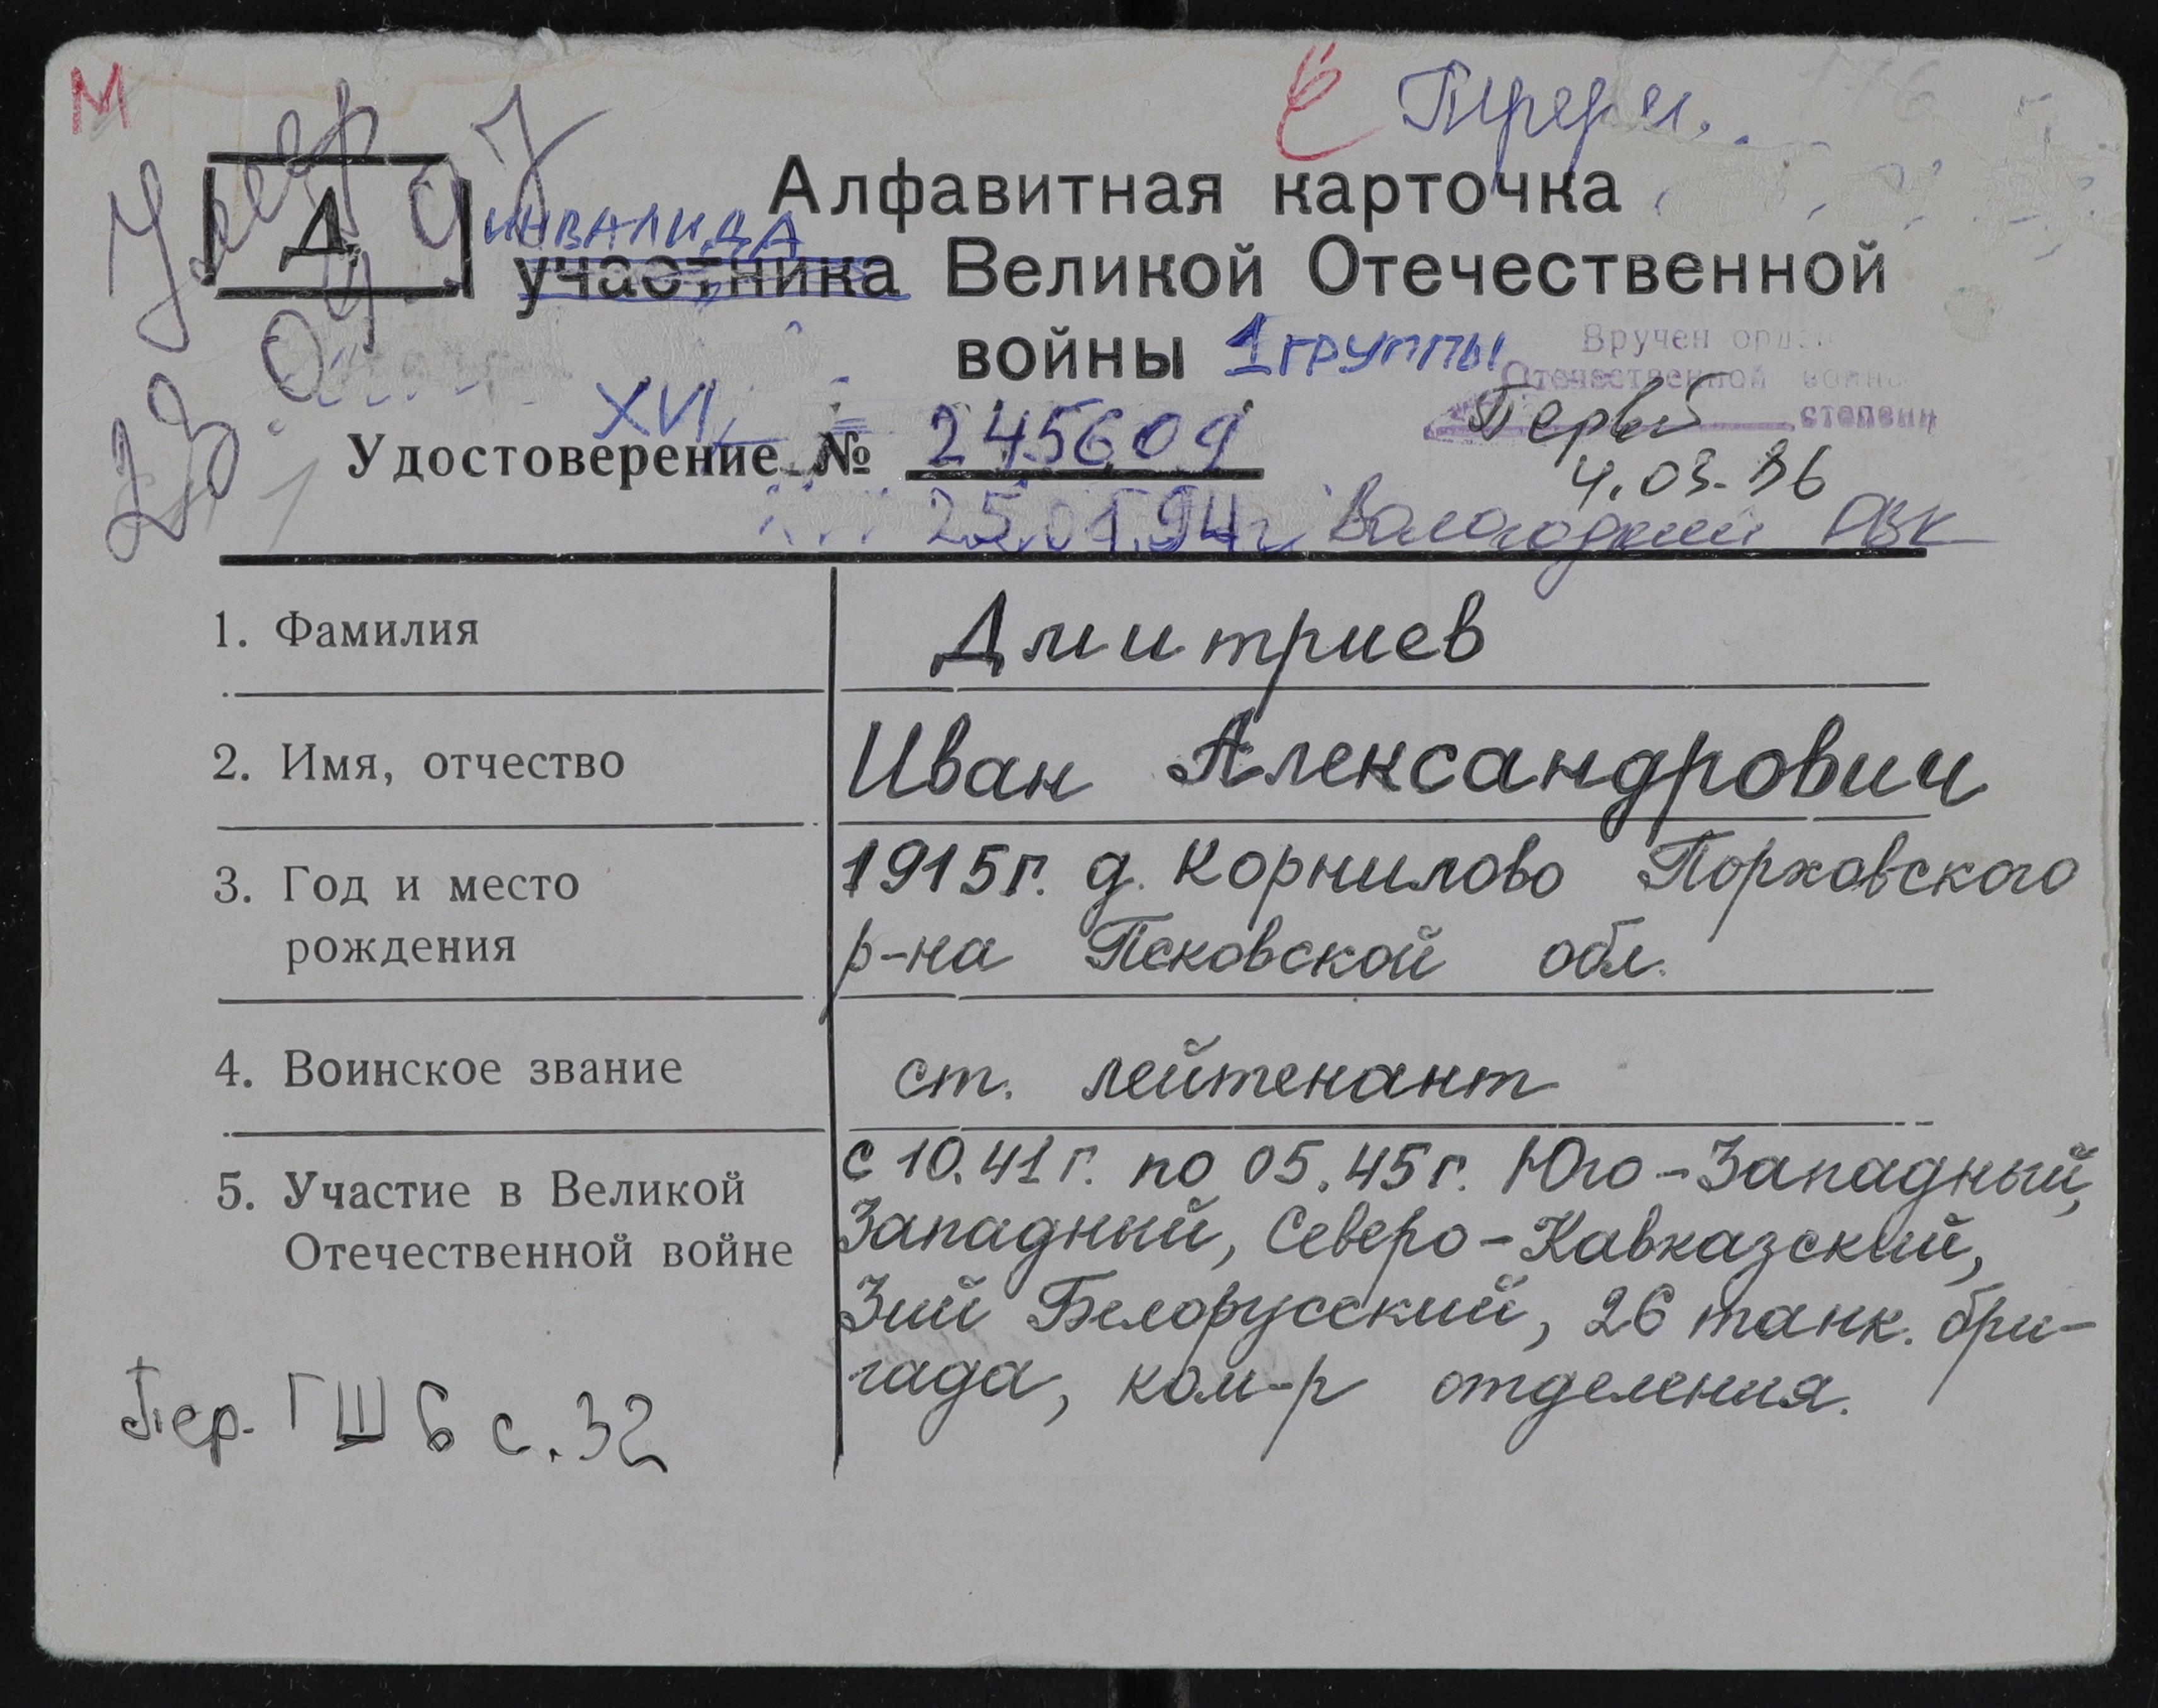 М
Умер
23.04.97
Д
Алфавитная карточка
инвалида
участника Великой Отечественной
войны 1 группы
Вручен орден
Отечественной войны
Первой степени
4.03.86
XVI
Удостоверение № 245609
25.01.94г Вологодский РВК
1. Фамилия
Дмитриев
2. Имя, отчество
Иван Александрович
3. Год и место
рождения
1915г. д. Корнилово Порховского
р-на Псковской обл.
4. Воинское звание
ст. лейтенант
5. Участие в Великой
Отечественной войне
с 10.41г. по 05.45г. Юго-Западный,
Западный, Северо-Кавказский,
3ий Белорусский, 26 танк. бри-
гада, ком-р отделения.
Пер. ГШ 6 с. 32